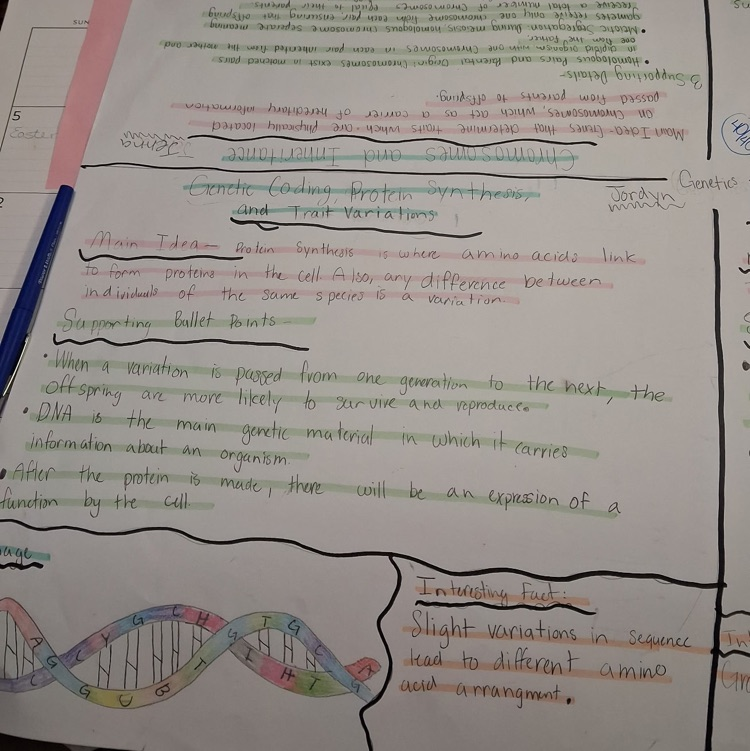 Genetic Coding, Protein Synthesis,
and Trait Variations
Jordyn
Genetics
Main Idea- Protein Synthesis is where amino acids link
to form proteins in the cell. Also, any difference between
individuals of the same species is a variation.
Supporting Bullet Points-
• When a variation is passed from one generation to the next, the
offspring are more likely to survive and reproduce.
• DNA is the main genetic material in which it carries
information about an organism.
• After the protein is made, there will be an expression of a
function by the cell.
Interesting Fact:
Slight variations in sequence
lead to different amino
acid arrangment.
Chromosomes and Inheritance
Jenna
Main Idea- Genes that determine traits which are physically located
on chromosomes, which act as a carrier of hereditary information
passed from parents to offspring.
3 Supporting Details-
• Homologous Pairs and Parental Origin: Chromosomes exist in matched pairs
in diploid organism with one chromosomes in each pair inherited from the mother and
one from the father.
• Meiotic Segregation: During meiosis homologous chromosome separate meaning
gametes receive only one chromosome from each pair ensuring that offspring
receive a total number of chromosomes equal to their parents
SUN
5
Easter